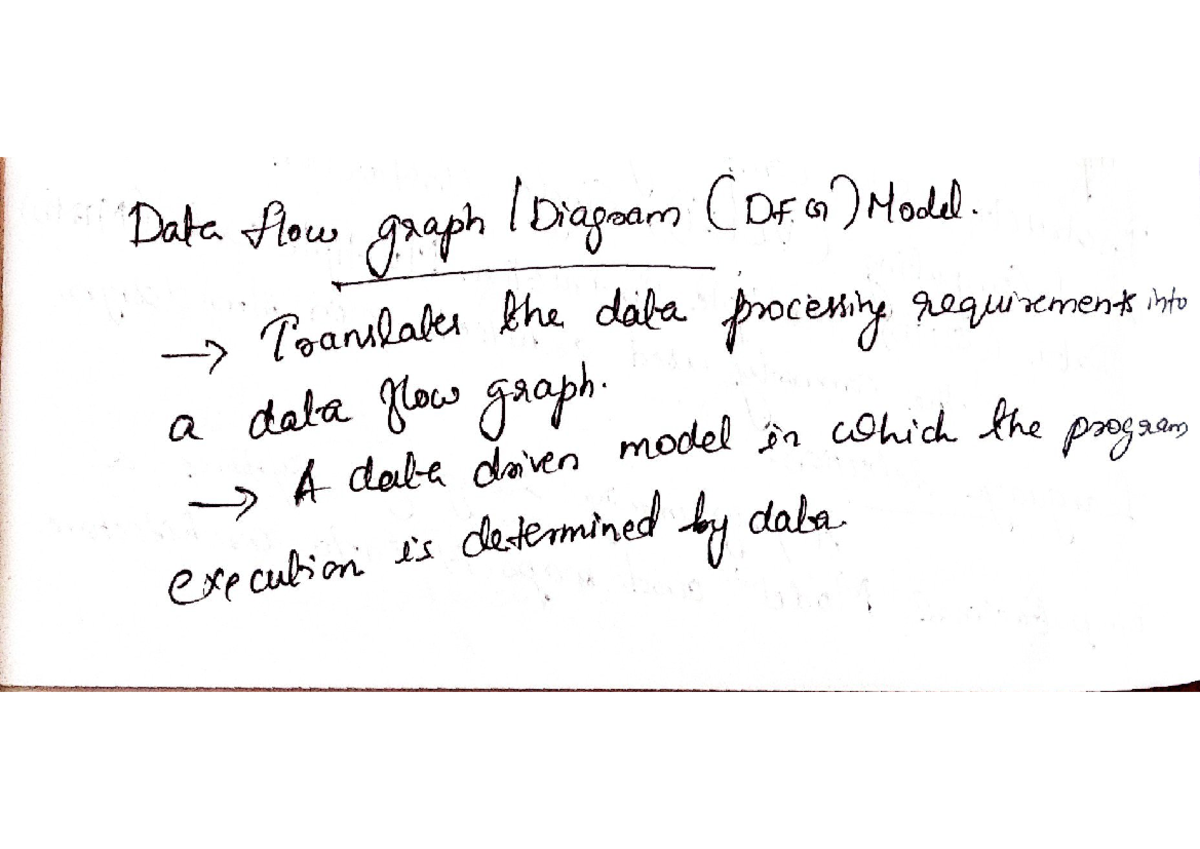 Data flow graph / Diagram (DFG) Model.
→ Translates the data processing requirements into
a data flow graph.
→ A data driven model in which the program
execution is determined by data.